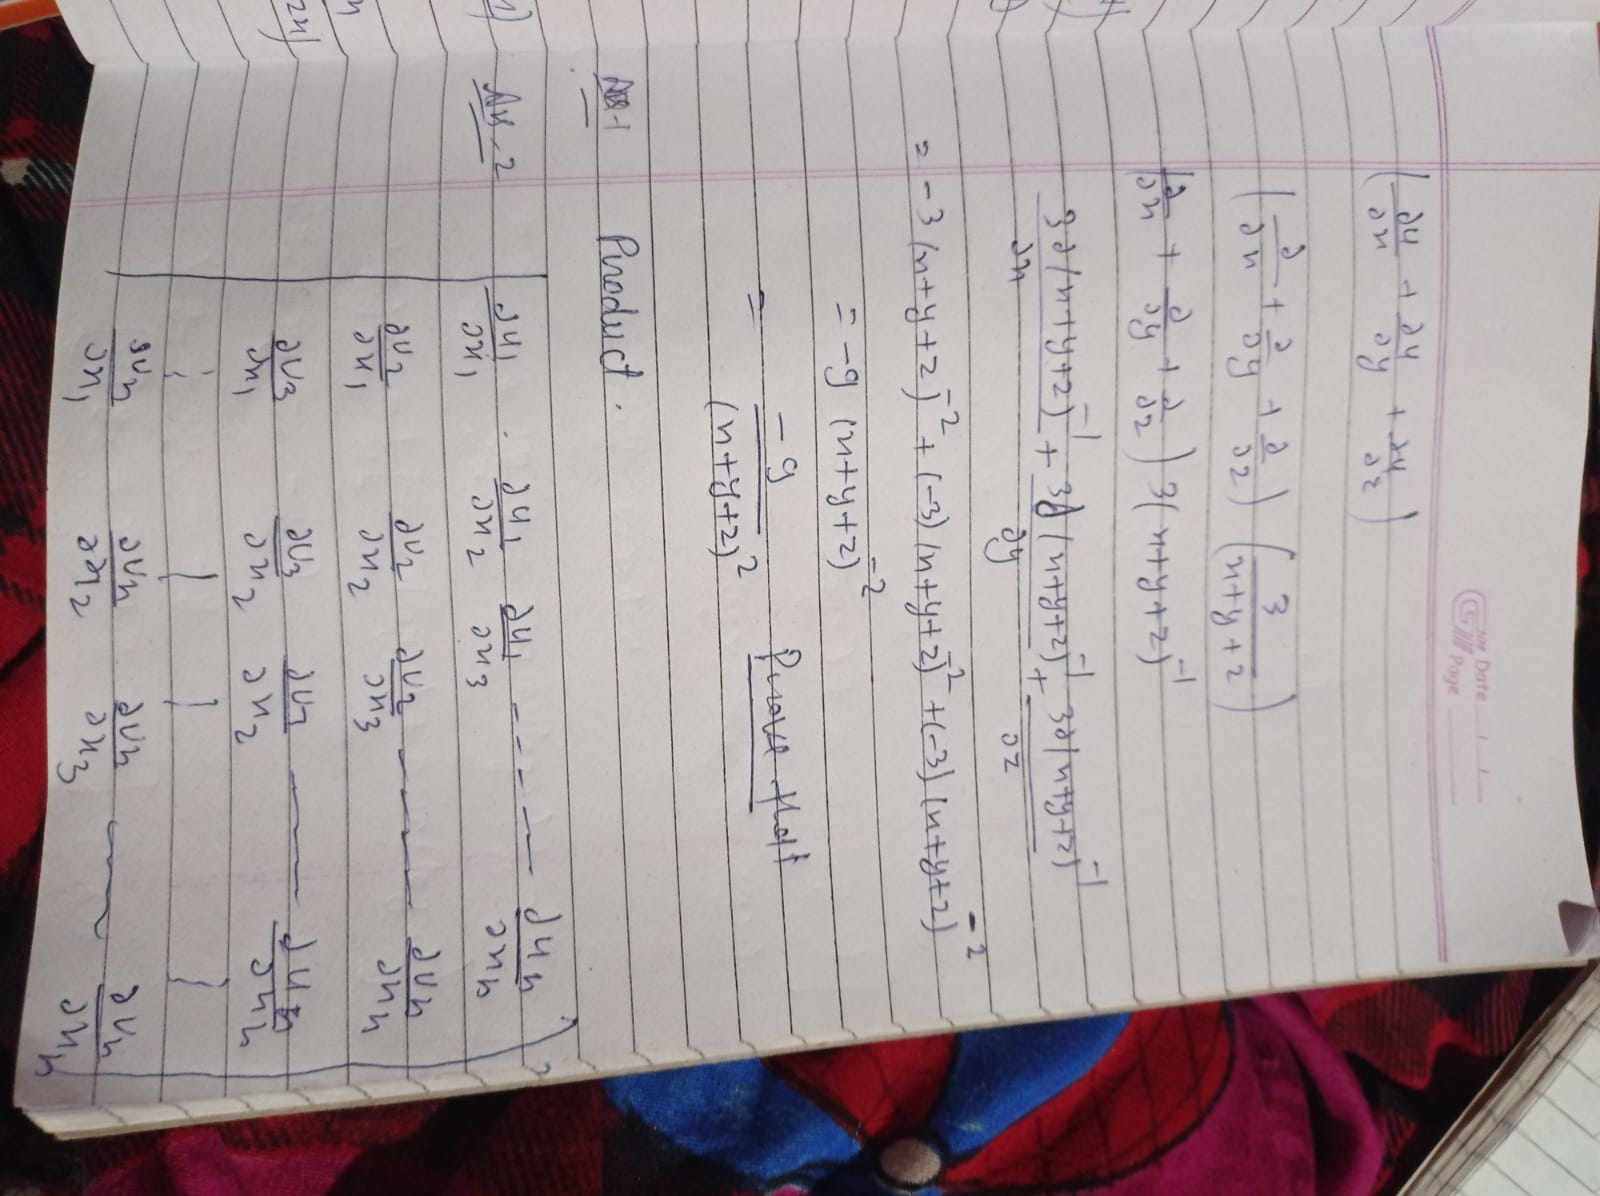 Date / /
Page
(∂u/∂x + ∂u/∂y + ∂u/∂z)
(∂/∂x + ∂/∂y + ∂/∂z) (3/(x+y+z))
(∂/∂x + ∂/∂y + ∂/∂z) 3(x+y+z)⁻¹
3∂(x+y+z)⁻¹/∂x + 3∂(x+y+z)⁻¹/∂y + 3∂(x+y+z)⁻¹/∂z
= -3(x+y+z)⁻² + (-3)(x+y+z)⁻² + (-3)(x+y+z)⁻²
= -9 (x+y+z)⁻²
= -9/(x+y+z)² Proved
Product.
2
∂u₁/∂x₁ ∂u₁/∂x₂ ∂u₁/∂x₃ ---- ∂uₙ/∂xₙ
∂u₂/∂x₁ ∂u₂/∂x₂ ∂u₂/∂x₃ ---- ∂uₙ/∂xₙ
∂u₃/∂x₁ ∂u₃/∂x₂ ∂u₃/∂x₂ ---- ∂uₙ/∂xₙ
∂uₙ/∂x₁ ∂uₙ/∂x₂ ∂uₙ/∂x₃ --- ∂uₙ/∂xₙ